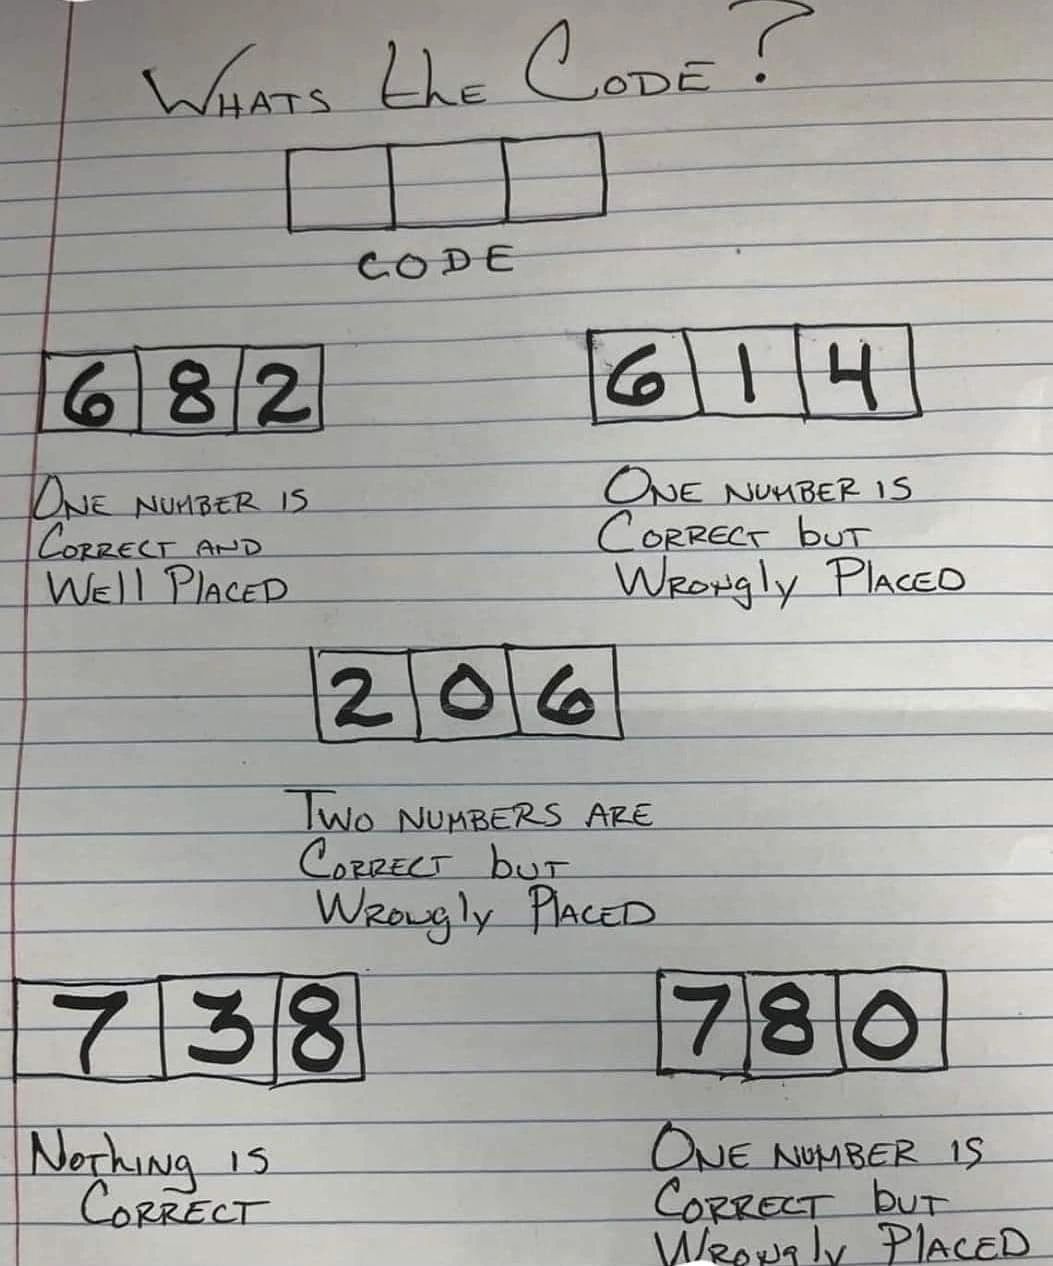 WHATS thE CODE?
CODE
6 8 2
ONE NUMBER IS
CORRECT AND
WEll PlACED
6 1 4
ONE NUMBER IS
CORRECT bUT
WRONgly PlACED
2 0 6
TWO NUMBERS ARE
CORRECT bUT
WRONgly PlACED
7 3 8
NOThING IS
CORRECT
7 8 0
ONE NUMBER IS
CORRECT bUT
WRONgly PlACED